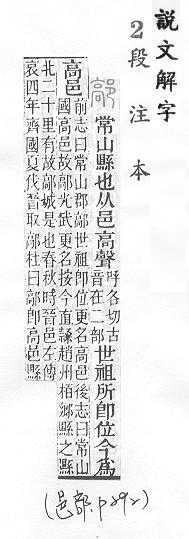 說文解字
2段注本
鄗 常山縣也从邑高聲 呼各切古音在二部 世祖所卽位今爲
高邑 前志曰常山郡鄗世祖卽位更名高邑後志曰常山
國高邑故鄗光武更名按今直隸趙州栢鄉縣之縣
北二十里有故鄗城是也春秋時晉邑左傳
哀四年齊國夏伐晉取鄗杜曰鄗卽高邑縣
(邑部.p292)